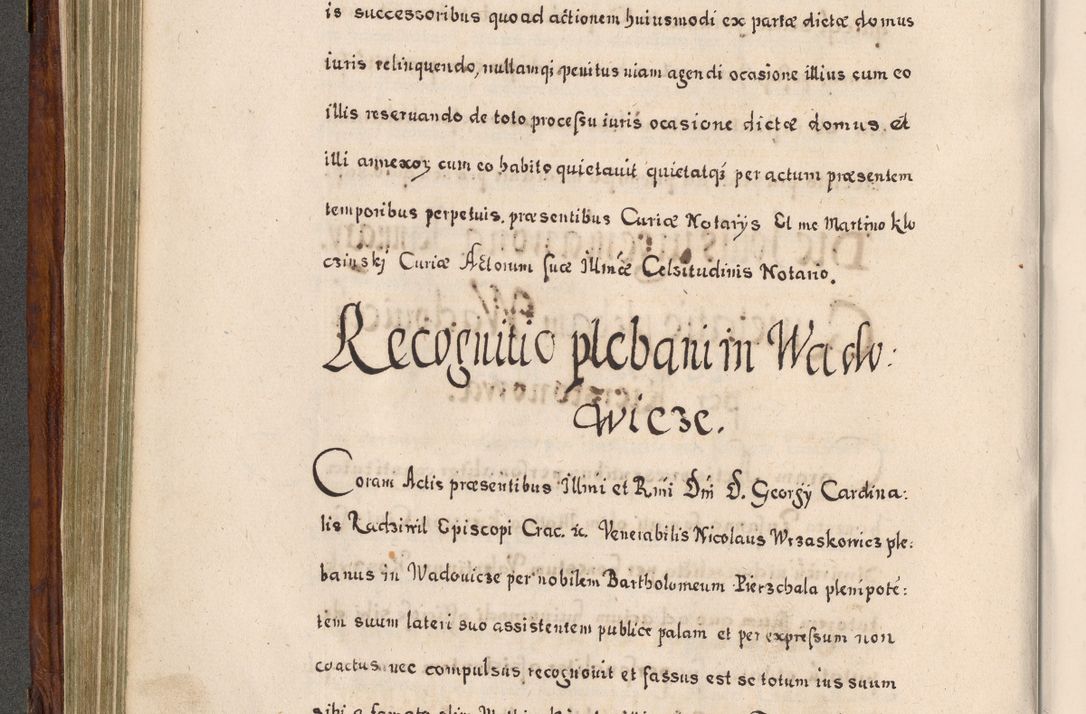 is successoribus quoad actionem huiusmodi ex partæ dictæ domus
iuris relinquendo, nullamqȝ penitus uiam agendi ocasione illius cum eo
illis reseruando de toto processu iuris ocasione dictæ domus. et
illi annexoꝝ cum eo habito quietauit quietatqȝ per actum præsentem
temporibus perpetuis. præsentibus Curiæ Notarijs Et me Martino Klo
czinskj Curiæ Actorum suæ Illmæ Celsitudinis Notario.
Recognitio plebani in Wado:
wicze.
Coram Actis præsentibus Illmi et Rmi Dni D. Georgÿ Cardina:
lis Radziwil Episcopi Crac. ic. Venerabilis Nicolaus Wrzaskowicz ple:
banus in Wadouicze per nobilem Bartholomeum Pierzchala plenipotē:
tem suum lateri suo assistentem publice palam et per expressum non
coactus nec compulsus recognouit et fassus est se totum ius suum
sibi a famato olim